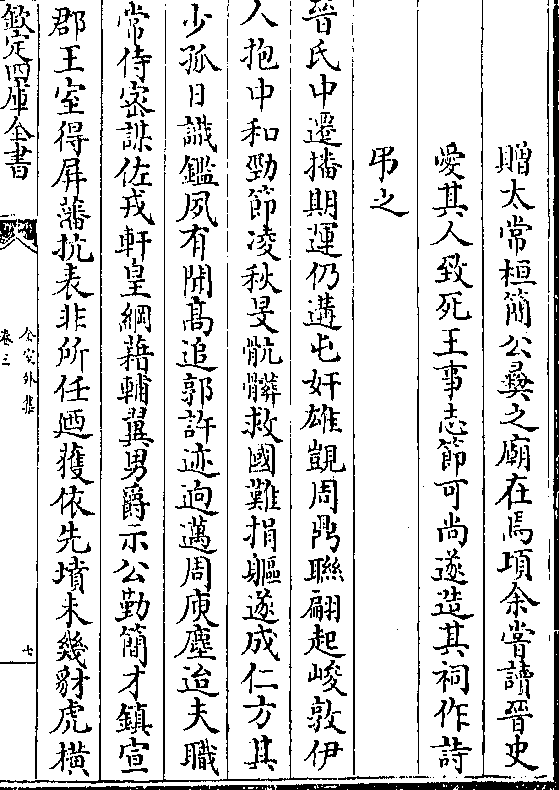 贈太常桓簡公彞之廟在焉項余嘗讀晉史
愛其人致死王事志節可尚遂造其祠作詩
弔之
晉氏中遷播期運仍遘屯奸雄覬周鼎聯翩起峻敦伊
人抱中和勁節凌秋旻骯髒救國難捐軀遂成仁方其
少孤日識鑑夙有聞髙追郭許迹逈邁周庾塵迨夫職
常侍密謀佐戎軒皇綱藉輔翼男爵示公勤簡才鎮宣
郡王室得屏藩抗表非所任廼獲依先墳未幾豺虎横
欽定四庫全書
全室外集
卷三
七